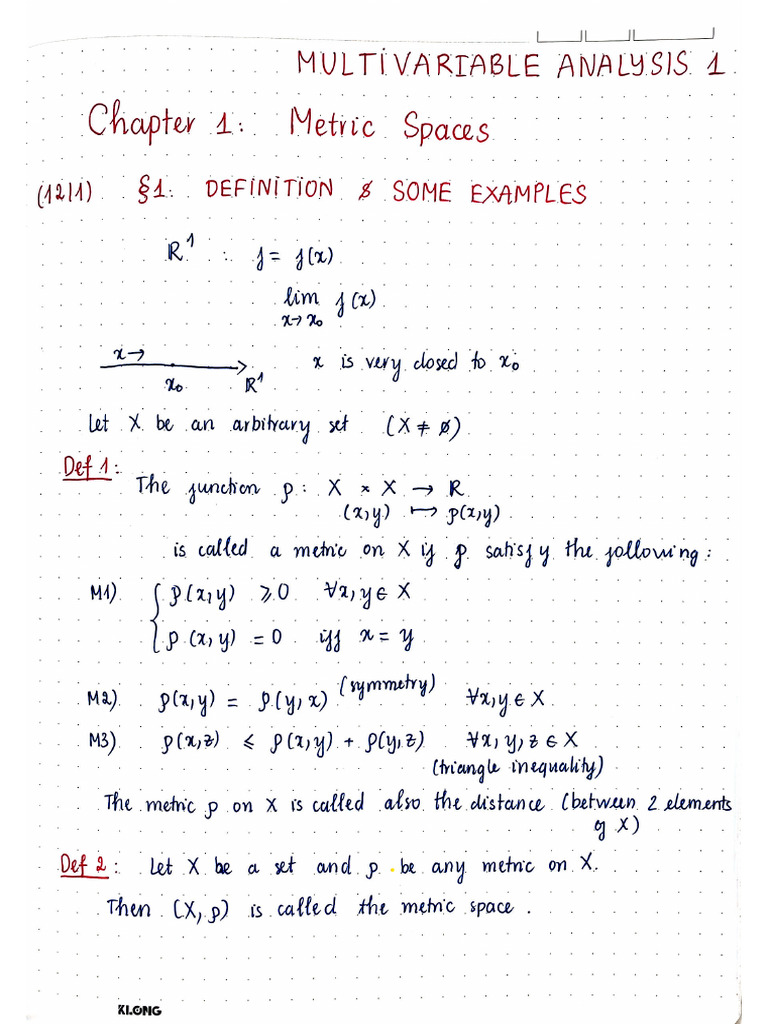 MULTIVARIABLE ANALYSIS 1
Chapter 1: Metric Spaces
(12/1) §1: DEFINITION & SOME EXAMPLES
ℝ¹ : f = f(x)
lim f(x)
x→x₀
x→ x is very closed to x₀
x₀ ℝ¹
Let X be an arbitrary set (X ≠ ∅)
Def 1:
The function ρ: X × X → ℝ
(x,y) ↦ ρ(x,y)
is called a metric on X if ρ satisfy the following:
M1) { ρ(x,y) ⩾ 0 ∀x,y ∈ X
ρ(x,y) = 0 iff x = y
M2) ρ(x,y) = ρ(y,x) (symmetry) ∀x,y ∈ X
M3) ρ(x,z) ⩽ ρ(x,y) + ρ(y,z) ∀x,y,z ∈ X
(triangle inequality)
The metric ρ on X is called also the distance (between 2 elements
of X)
Def 2: Let X be a set and ρ be any metric on X.
Then (X, ρ) is called the metric space.
KLONG